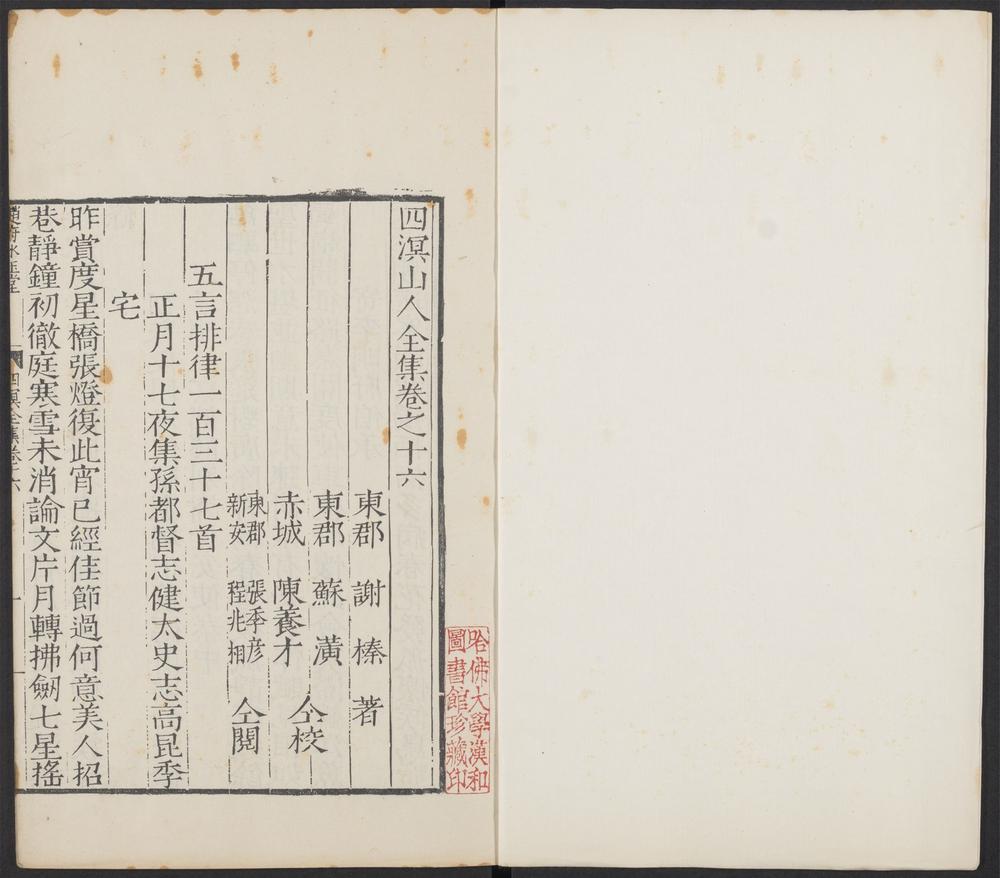 四溟山人全集卷之十六
東郡 謝榛 著
東郡 蘇潢
赤城 陳養才 仝校
東郡 張季彦
新安 程兆相 仝閱
五言排律一百三十七首
正月十七夜集孫都督志健太史志高昆季
宅
昨賞度星橋張燈復此宵已經佳節過何意美人招
巷靜鐘初徹庭寒雪未消論文片月轉拂劒七星搖
趙府冰玉堂
四溟全集卷十六
一
哈佛大學漢和
圖書館珍藏印